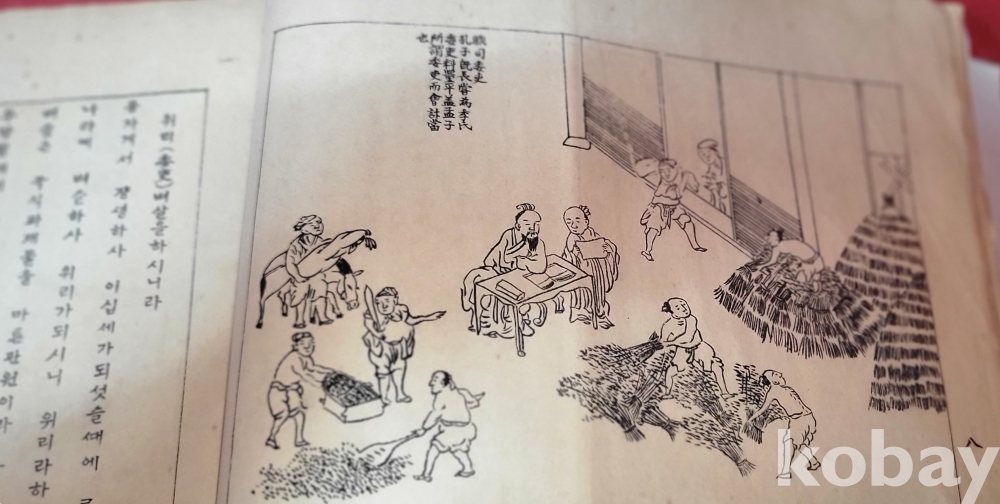 職司委吏
孔子旣長嘗爲季氏
委吏料量平蓋孟子
所謂委吏而會計當
也
八
위리(委吏)벼살을하시니라
공자께서 장성하사 이십세가되섯슬때에
나라에 벼슬하사 위리가되시니 위리라하
벼슬은 곡식과재물을 마른관원이라
kobay